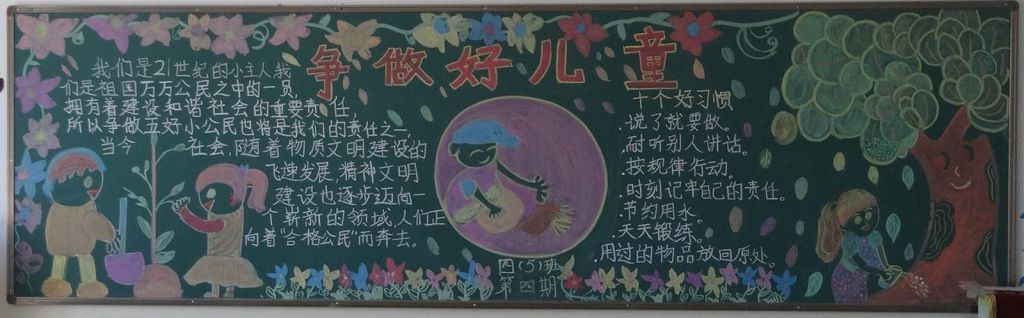 争做好儿童
我们是21世纪的小主人我
们是祖国万万公民之中的一员,
拥有着建设和谐社会的重要责任,
所以争做五好小公民也将是我们的责任之一,
当今 社会,随着物质文明建设的
飞速发展,精神文明
建设也逐步迈向一
个崭新的领域,人们正
向着“合格公民”而奔去。
十个好习惯
.说了就要做。
.耐听别人讲话。
.按规律行动。
.时刻记牢自己的责任。
.节约用水。
.天天锻练。
.用过的物品放回原处。
四(5)班
第四期